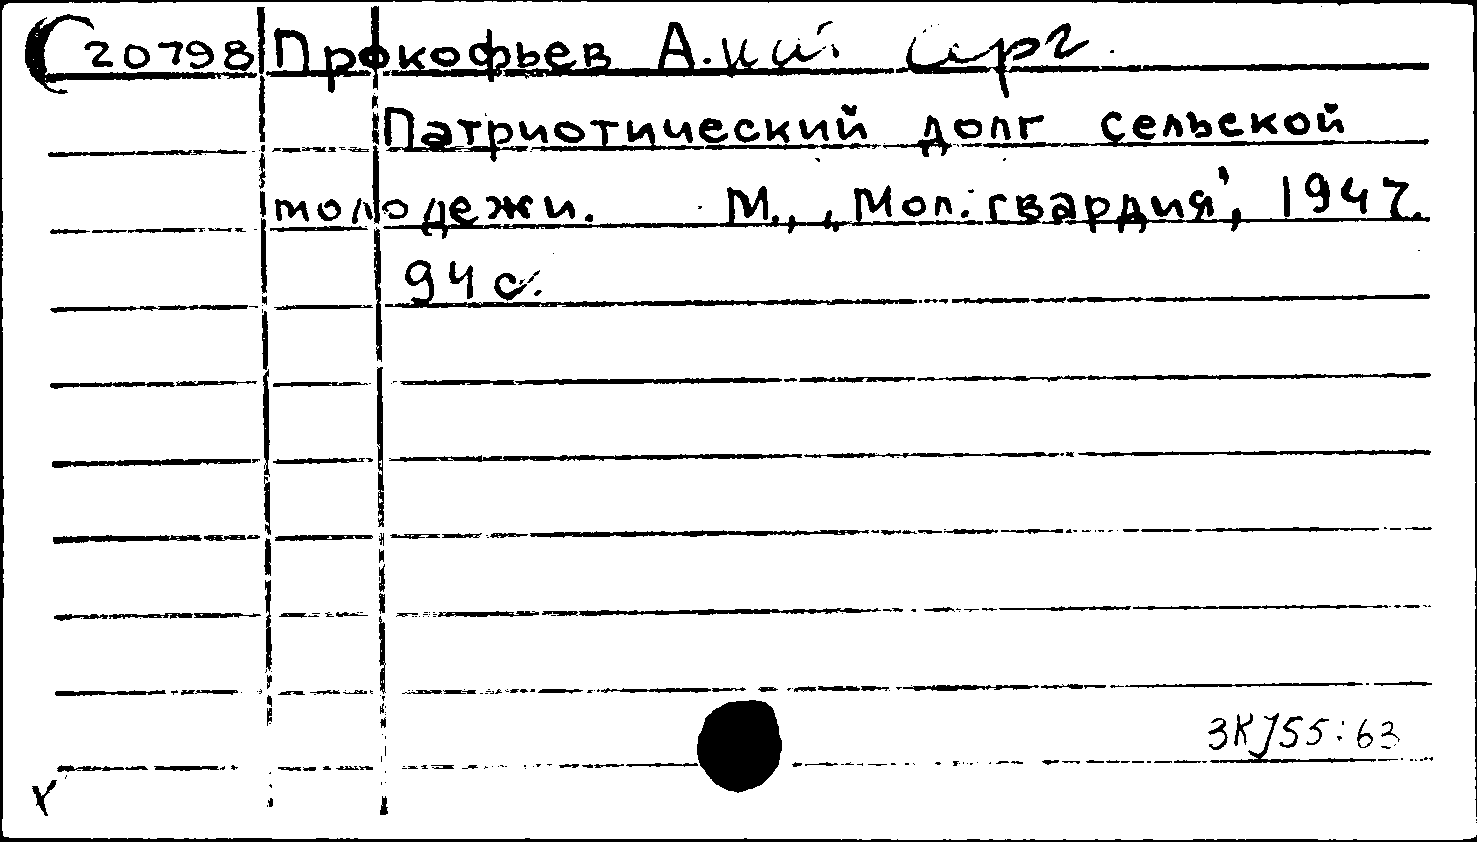 20798 Прокофьев А.
Патриотический долг сельской
молодежи. М., „Мол. гвардия", 1947.
94 с.
3КЈ55:63